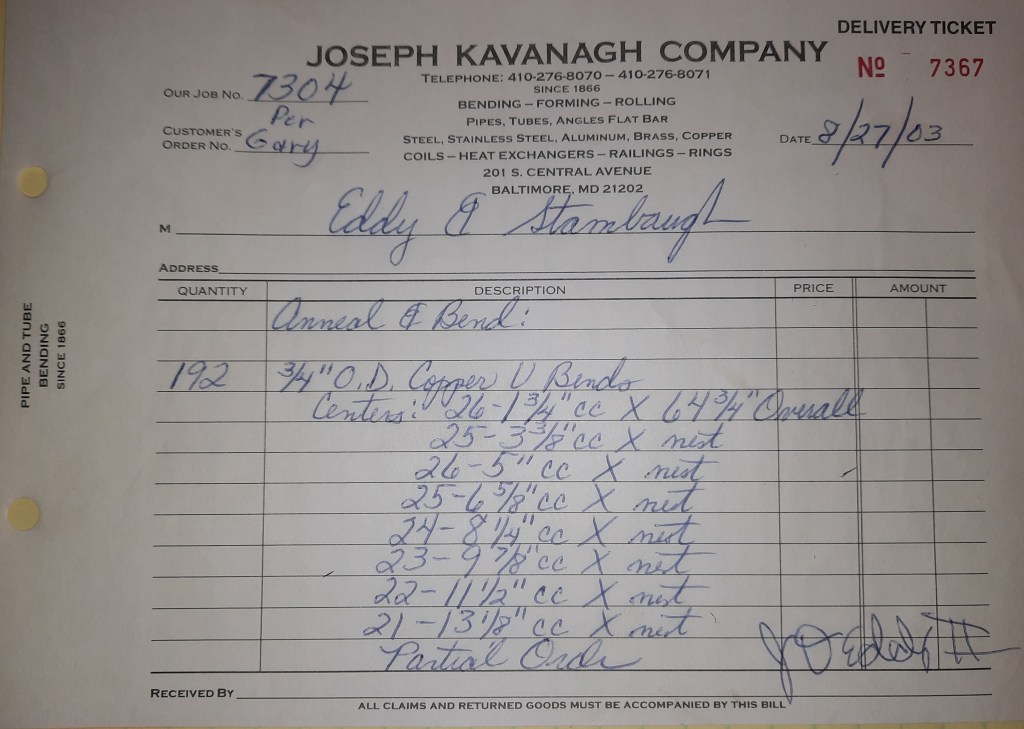 DELIVERY TICKET
JOSEPH KAVANAGH COMPANY
Nº 7367
TELEPHONE: 410-276-8070 – 410-276-8071
SINCE 1866
OUR JOB NO. 7304
BENDING – FORMING – ROLLING
PIPES, TUBES, ANGLES FLAT BAR
CUSTOMER'S ORDER NO. Per Gary
STEEL, STAINLESS STEEL, ALUMINUM, BRASS, COPPER
DATE 8/27/03
COILS – HEAT EXCHANGERS – RAILINGS – RINGS
201 S. CENTRAL AVENUE
BALTIMORE, MD 21202
M Eddy & Stambaugh
ADDRESS
QUANTITY DESCRIPTION PRICE AMOUNT
Anneal & Bend:
192 3/4" O.D. Copper U Bends
Centers: 26-1 3/4" cc X 64 3/4" Overall
25-3 3/8" cc X nest
26-5" cc X nest
25-6 5/8" cc X nest
24-8 1/4" cc X nest
23-9 7/8" cc X nest
22-11 1/2" cc X nest
21-13 1/8" cc X nest
Partial Order
RECEIVED BY
ALL CLAIMS AND RETURNED GOODS MUST BE ACCOMPANIED BY THIS BILL
PIPE AND TUBE
BENDING
SINCE 1866